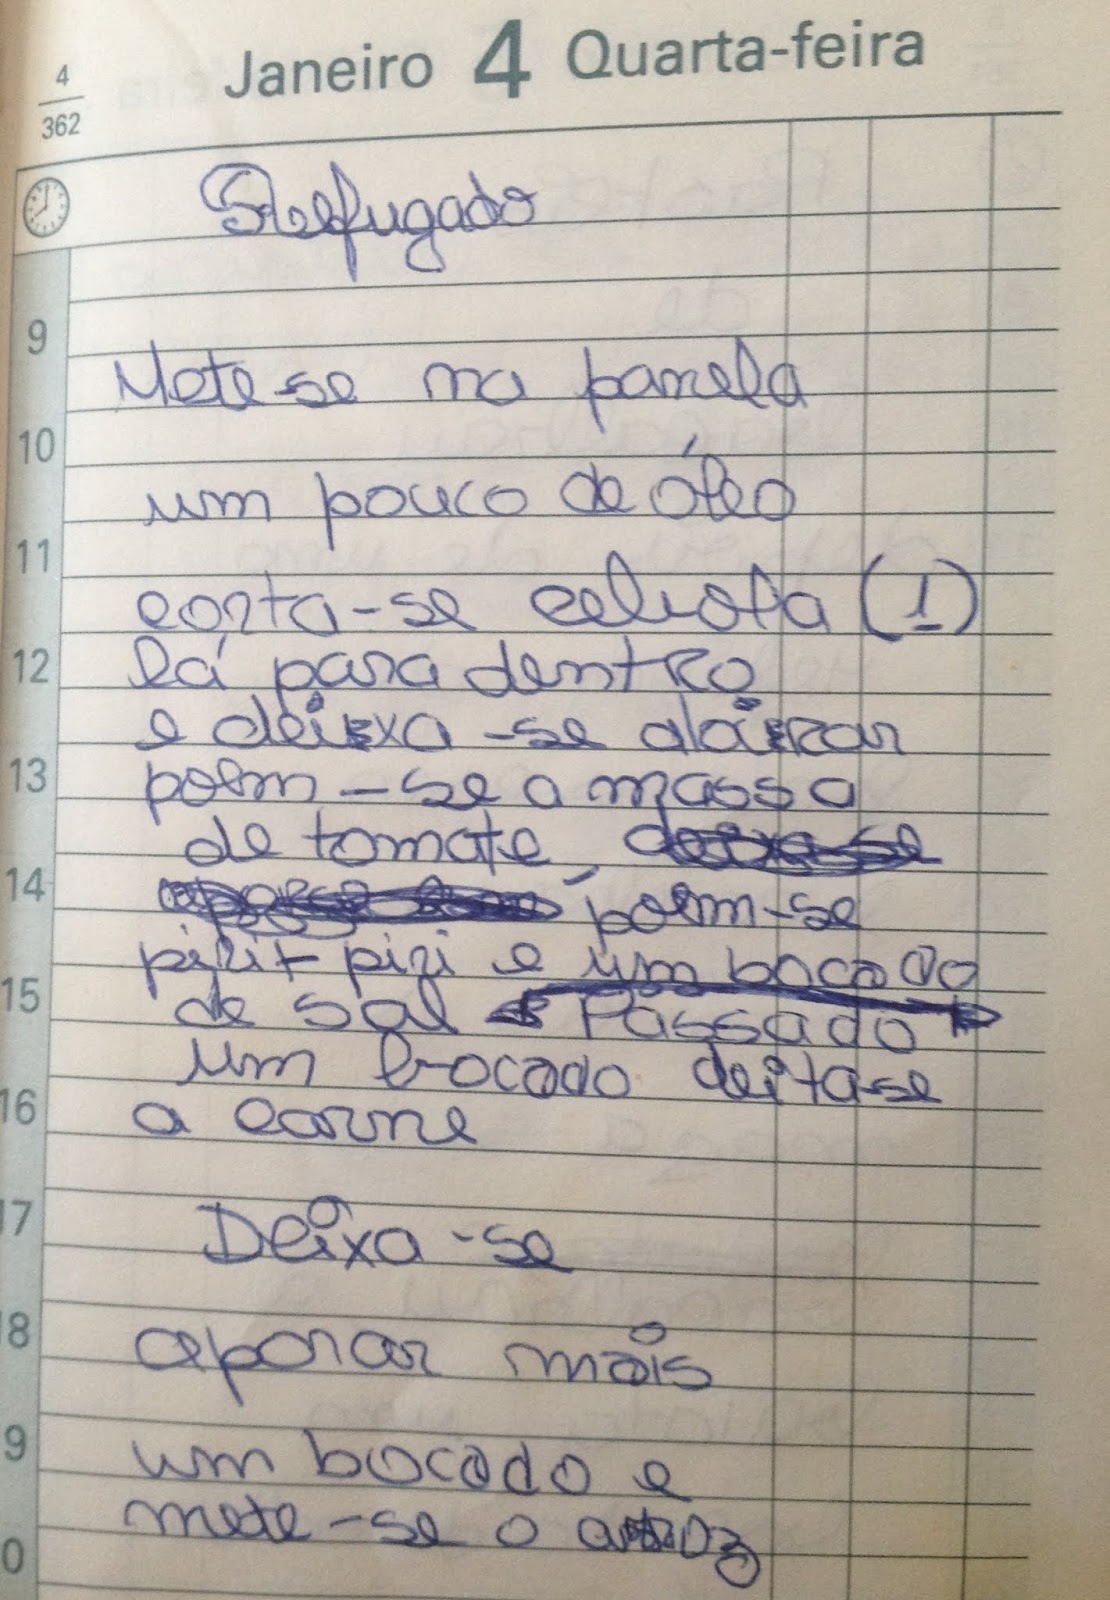 4
362
Janeiro 4 Quarta-feira
Refugado
9
Mete-se na panela
10
um pouco de óleo
11
corta-se cebola (1)
12
lá para dentro
e deixa-se aloirar
13
poem-se a massa
de tomate,
14
poem-se
piri+piri e um bocado
15
de sal Passado
um bocado deita-se
16
a carne
17
Deixa-se
18
aporar mais
19
um bocado e
mete-se o arroz
20